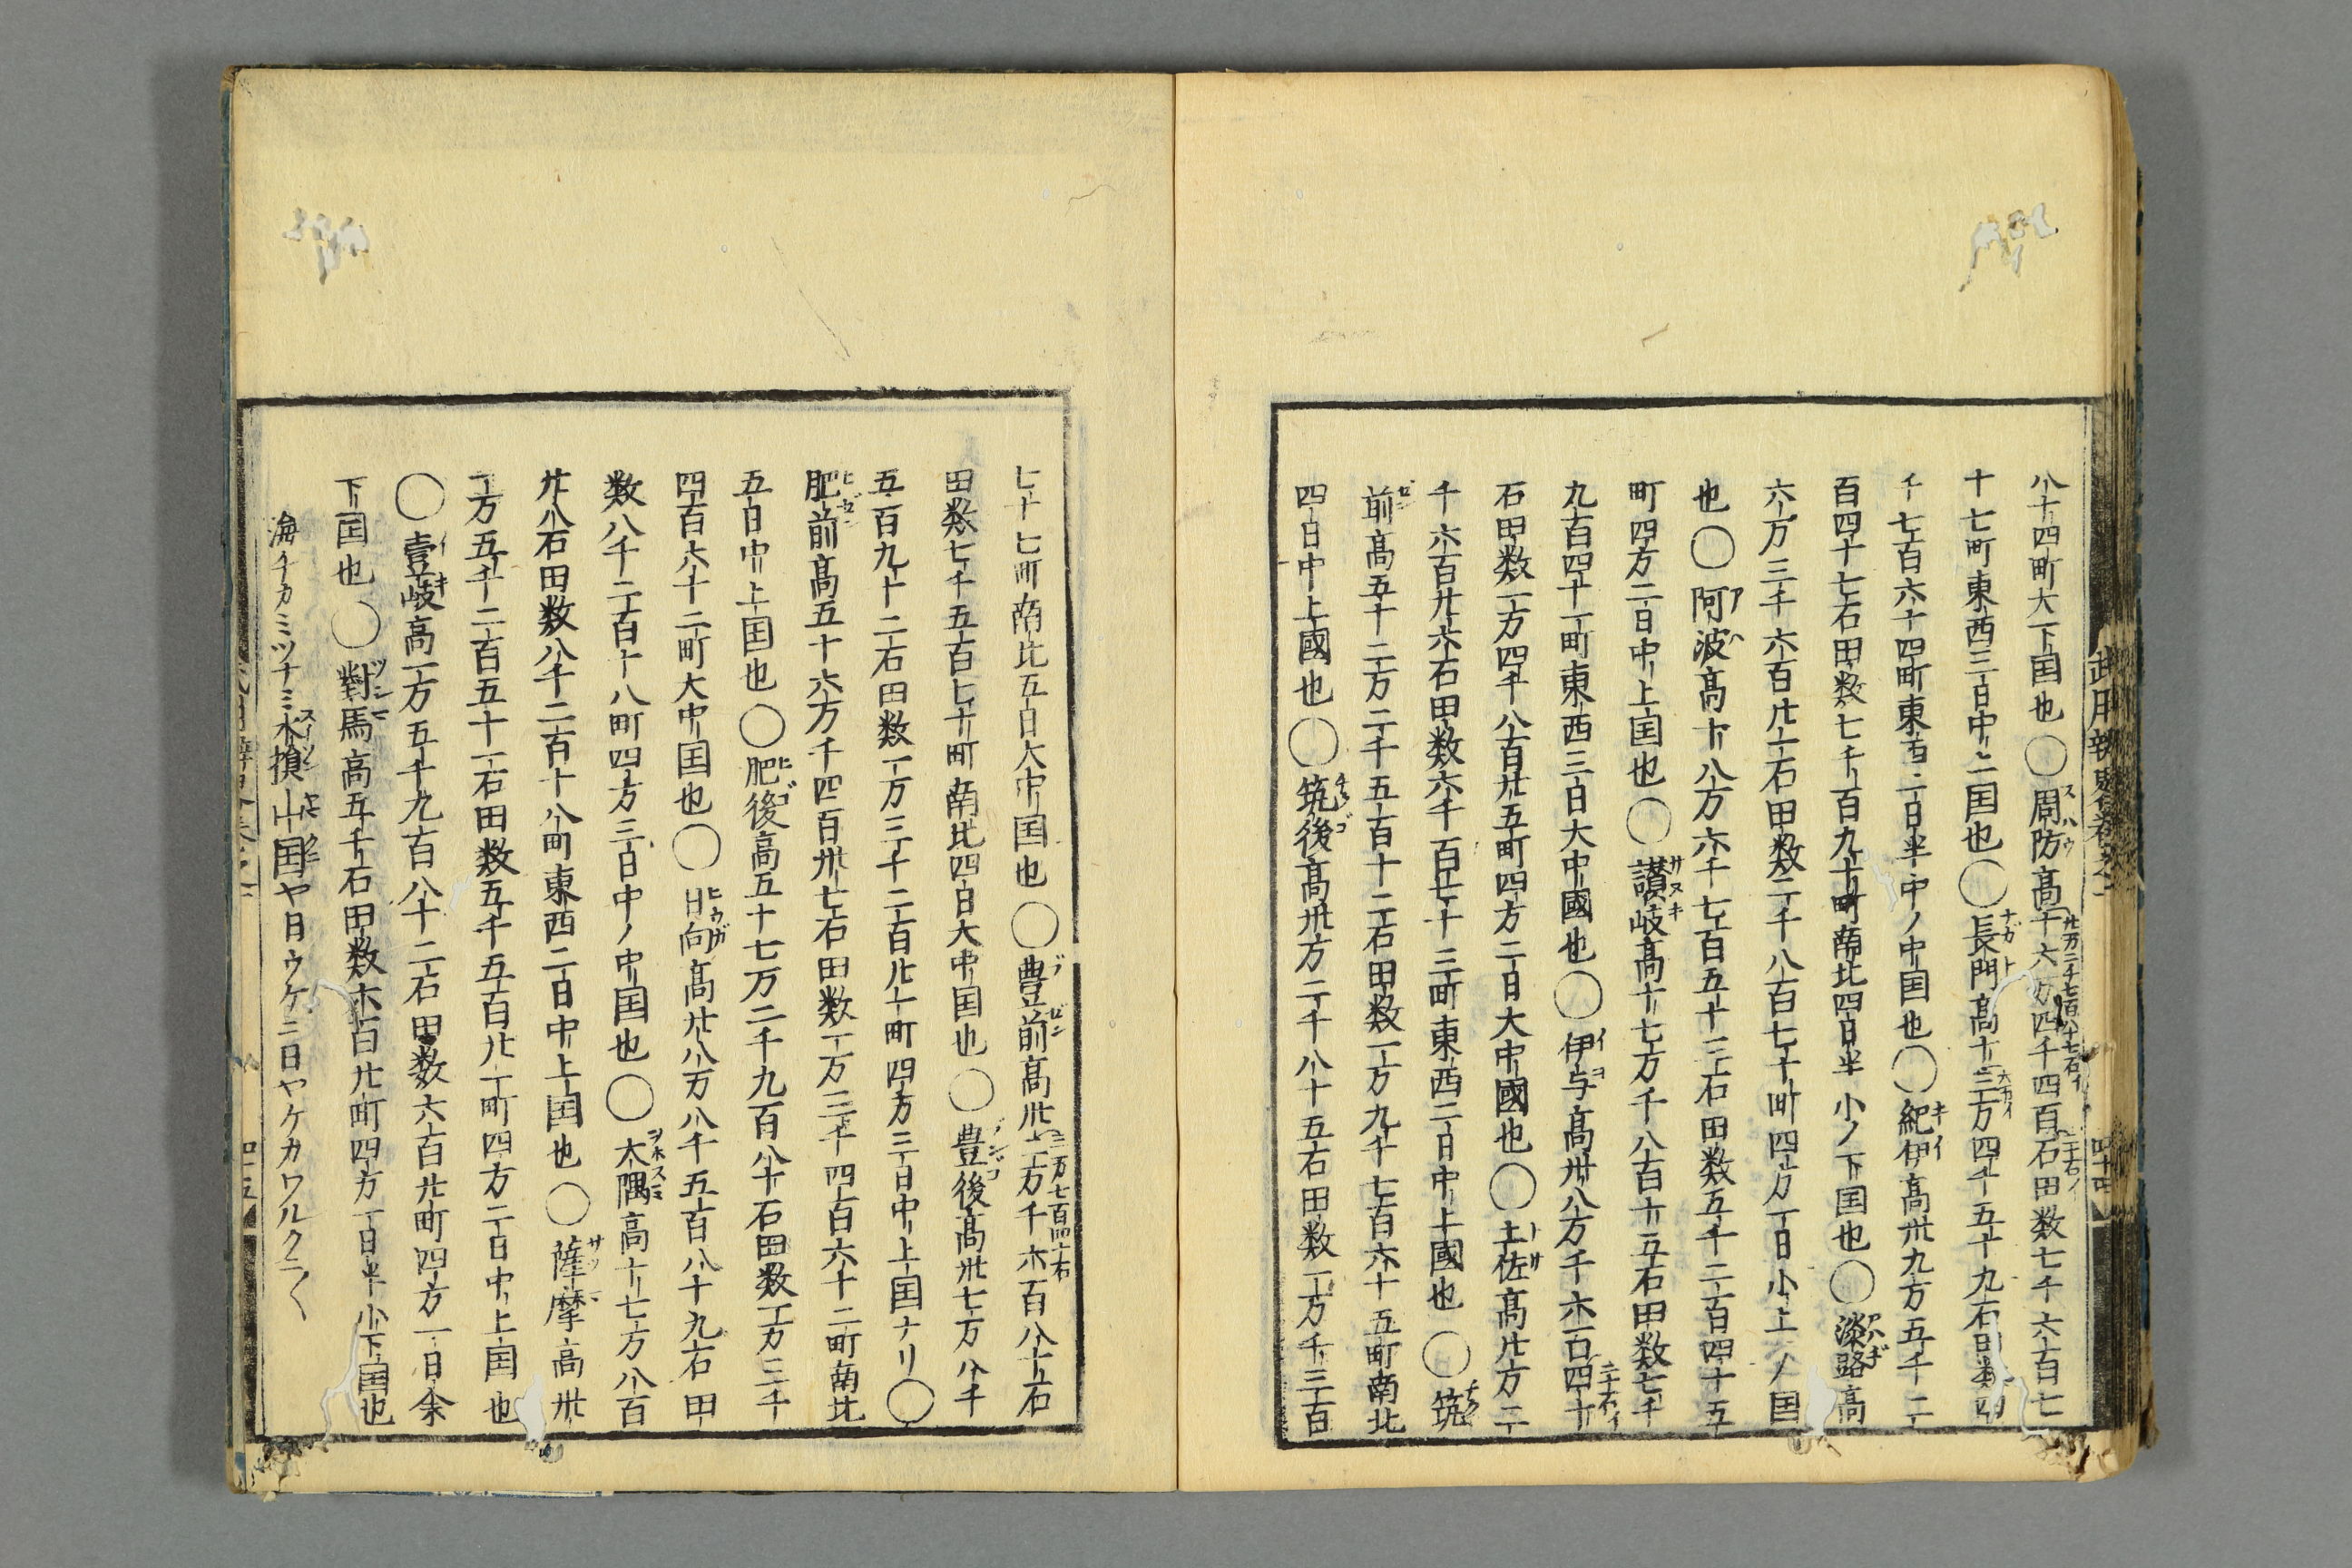 八十四町大下国也〇周防高十六万四千四百石田数七千六百七
十七町東西三日中上国也〇長門高十三万四千五十九石田数四
千七百六十四町東西二日半中ノ中国也〇紀伊高卅九万五千二
百四十七石田数七千百九十町南北四日半小ノ下国也〇淡路高
六万三千六百廿一石田数二千八百七十町四方一日小上ノ国
也〇阿波高十八万六千七百五十三石田数五千二百四十五
町四方二日中上国也〇讃岐高十七万千八百十五石田数七千
九百四十一町東西三日大中國也〇伊与高卅八万千六百四十
石田数一万四千八百廿五町四方二日大中國也〇土佐高廿万二
千六百廿六石田数六千百七十三町東西二日中上國也〇筑
前高五十二万二千五百十二石田数一万九千七百六十五町南北
四日中上國也〇筑後高卅万二千八十五石田数一万千三百
七十七町南北五日大中国也〇豊前高卅三万千六百八十五石
田数七千五百七十町南北四日大中国也〇豊後高卅七万八千
五百九十二石田数一万三千二百廿七町四方三日中上国ナリ〇
肥前高五十六万千四百卅七石田数一万三千四百六十二町南北
五日中上国也〇肥後高五十七万二千九百八十石田数一万三千
四百六十二町大中国也〇日向高廿八万八千五百八十九石田
数八千二百十八町四方三日中ノ中国也〇大隅高十七万八百
廿八石田数八千二百十八町東西二日中上国也〇薩摩高卅
一万五千二百五十一石田数五千五百廿一町四方二日中上国也
〇壹岐高一万五千九百八十二石田数六百廿町四方一日余
下国也〇對馬高五千石田数六百廿町四方一日半小下国也
海チカミツナミ水損山国ヤ日ウケニ日ヤケカワルクニ〱